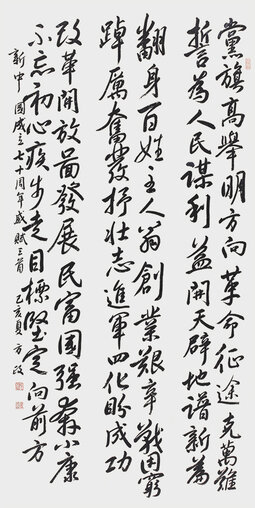 黨旗高舉明方向革命征途克萬難
誓為人民謀利益開天辟地譜新篇
翻身百姓主人翁創業艱辛戰困窮
踔厲奮發抒壯志進軍四化盼成功
改革開放啚發展民富国强奔小康
不忘初心疾步走目標堅定向前方
新中國成立七十周年感賦三首 己亥夏方政